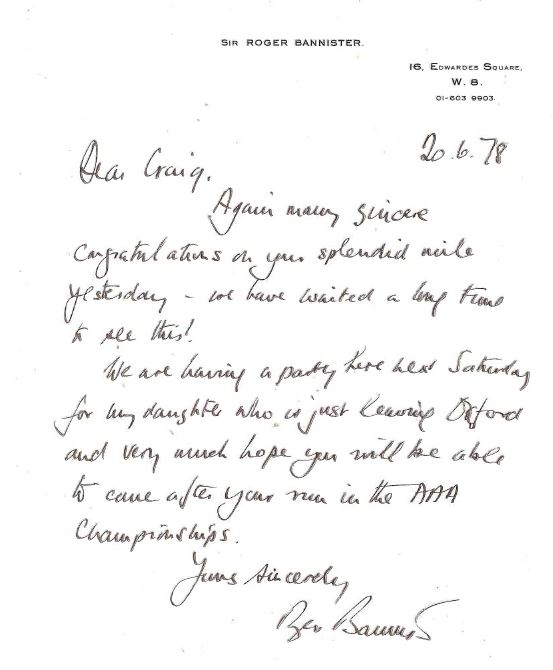 SIR ROGER BANNISTER.
16, EDWARDES SQUARE,
W. 8.
01-603 9903.
20.6.78
Dear Craig,
Again many sincere
congratulations on your splendid mile
yesterday - we have waited a long time
to see this!
We are having a party here next Saturday
for my daughter who is just leaving Oxford
and very much hope you will be able
to come after your run in the AAA
Championships.
Yours sincerely
Bannister